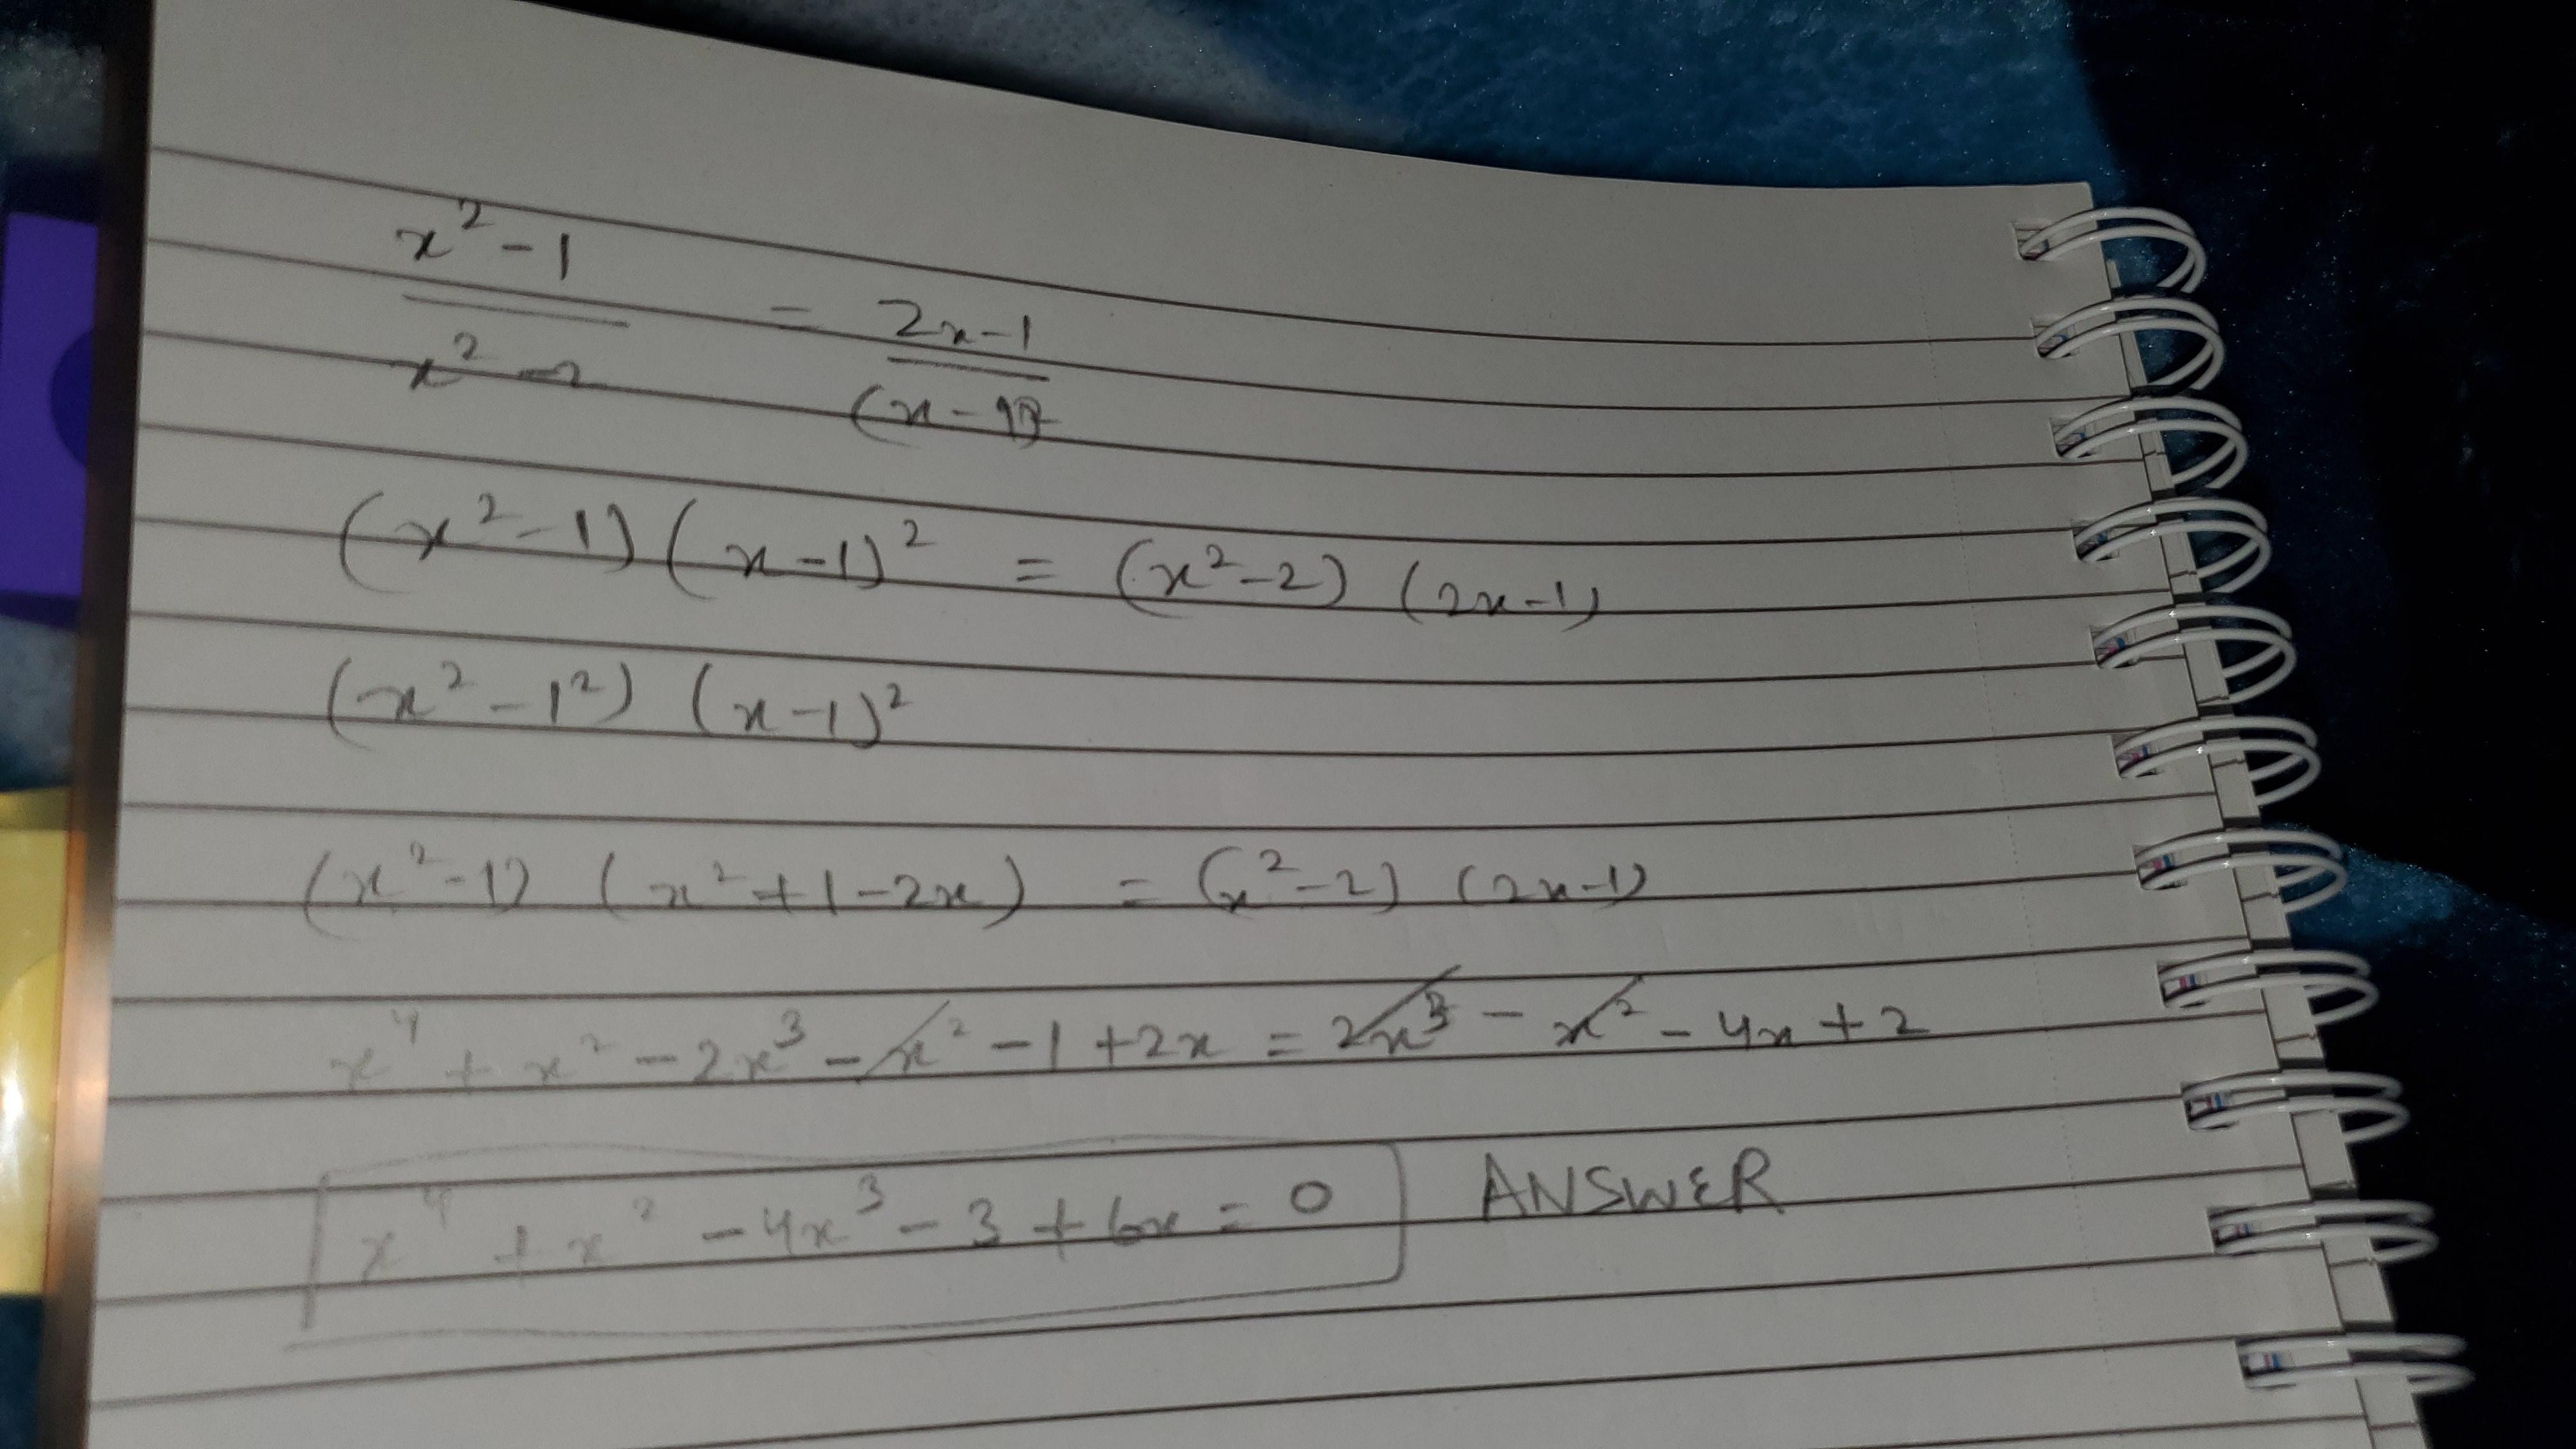 x² - 1
x² - 2
= 2x - 1
(x - 1)²
(x² - 1) (x - 1)² = (x² - 2) (2x - 1)
(x² - 1²) (x - 1)²
(x² - 1) (x² + 1 - 2x) = (x² - 2) (2x - 1)
x⁴ + x² - 2x³ - x² - 1 + 2x = 2x³ - x² - 4x + 2
x⁴ + x² - 4x³ - 3 + 6x = 0 ANSWER